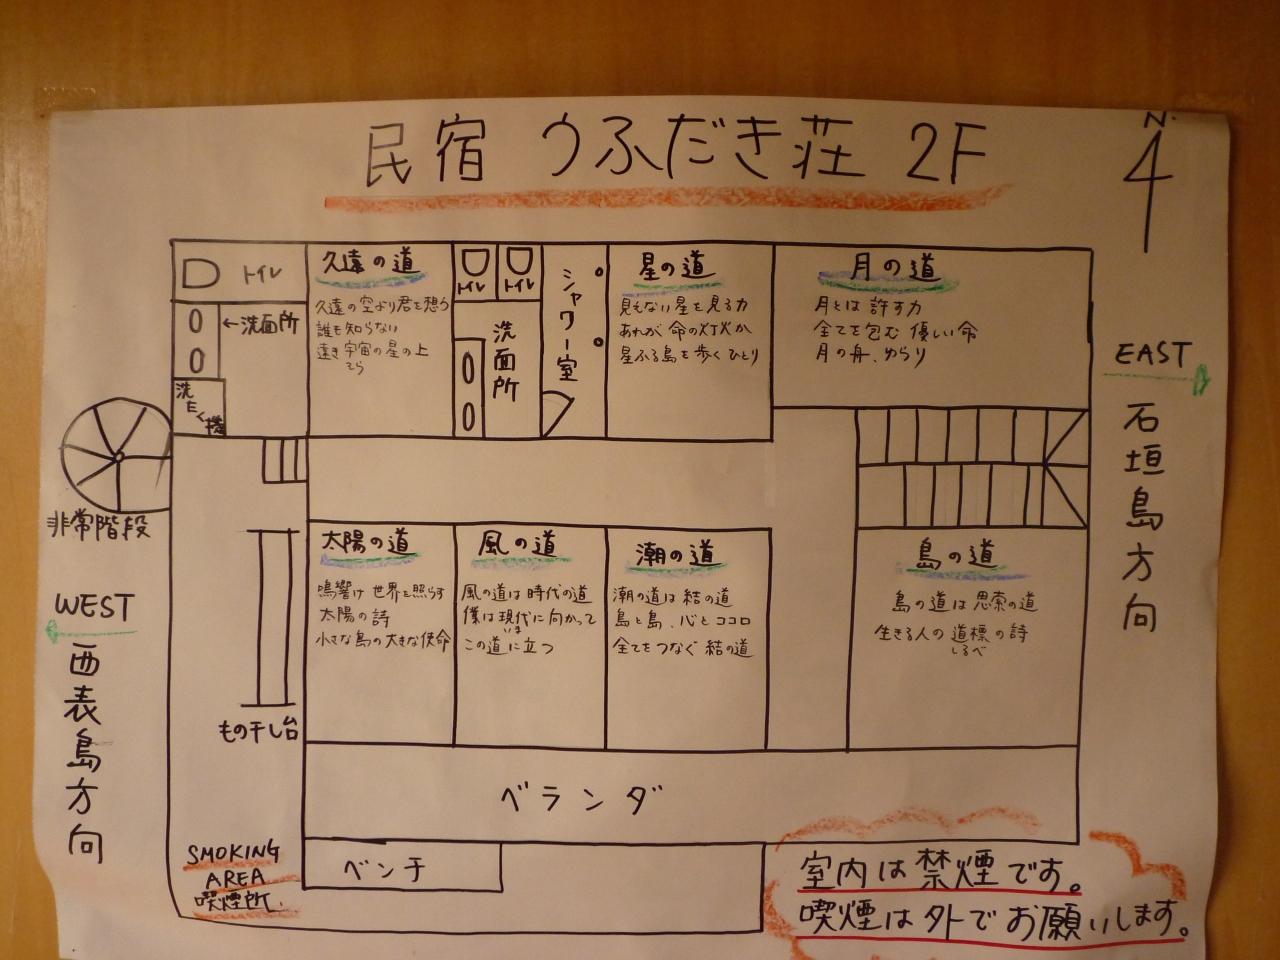 民宿 うふだき荘 2F
N.
トイレ
←洗面所
洗たく機
久遠の道
久遠の空より君を想う
誰も知らない
遠き宇宙の星の上
てら
トイレ
トイレ
洗面所
シャワー室
星の道
見えない星を見る力
あれが命の灯火か
星ふる島を歩くひとり
月の道
月とは許す力
全てを包む優しい命
月の舟、ゆらり
EAST
石垣島方向
非常階段
WEST
西表島方向
もの干し台
太陽の道
鳴響け世界を照らす
太陽の詩
小さな島の大きな使命
風の道
風の道は時代の道
僕は現代に向かって
いま
この道に立つ
潮の道
潮の道は結の道
島と島、心とココロ
全てをつなぐ結の道
島の道
島の道は思索の道
生きる人の道標の詩
しるべ
ベランダ
ベンチ
SMOKING
AREA
喫煙所.
室内は禁煙です。
喫煙は外でお願いします。